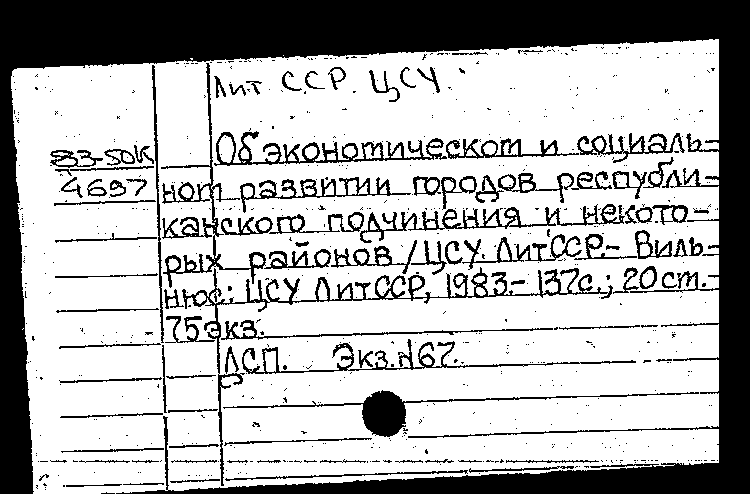 Лит ССР. ЦСУ.
83-50К
4697
Об экономическом и социаль-
ном развитии городов республи-
канского подчинения и некото-
рых районов / ЦСУ. ЛитССР.- Виль-
нюс: ЦСУ ЛитССР, 1983.- 137с.; 20 ст.-
75 экз.
ДСП. Экз.№67.